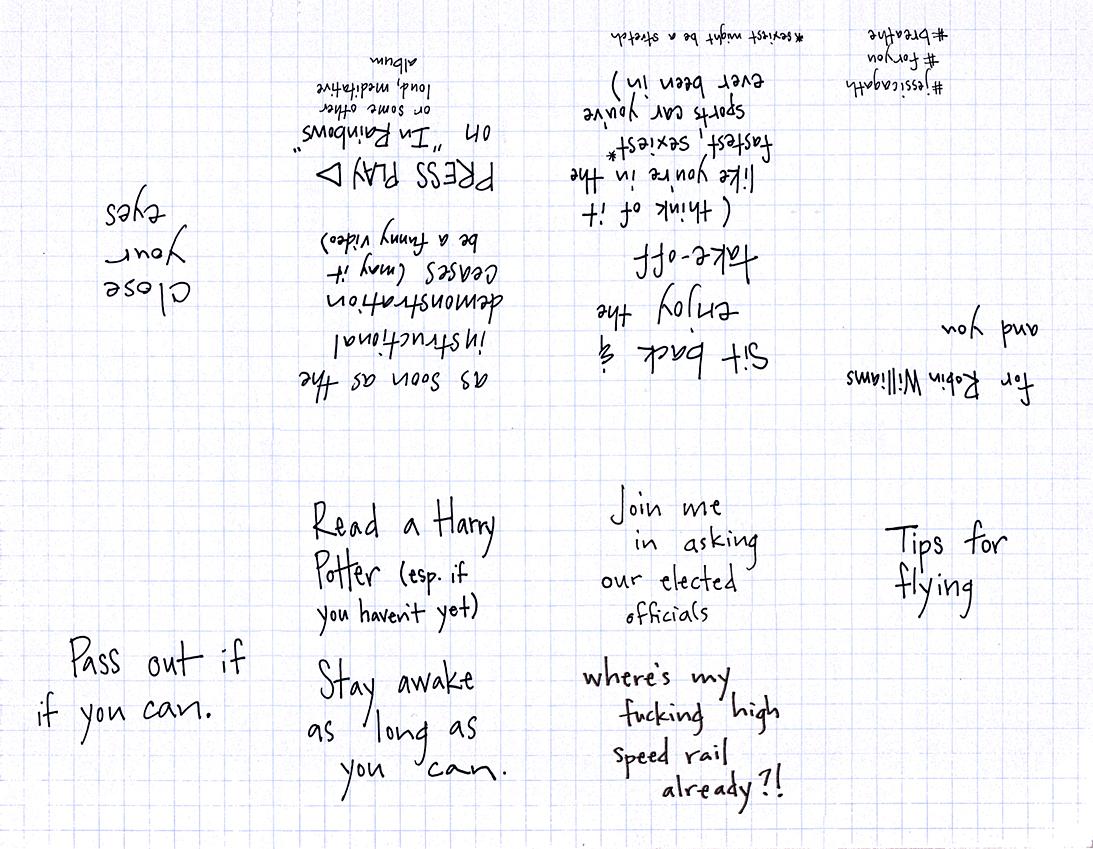 Tips for
flying
for Robin Williams
and you
#jessicagath
#foryou
#breathe
Sit back &
enjoy the
take-off
(think of it
like you're in the
fastest, sexiest*
sports car you've
ever been in)
*sexiest might be a stretch
as soon as the
instructional
demonstration
ceases (may it
be a funny video)
PRESS PLAY ▷
on "In Rainbows"
or some other
loud, meditative
album
close
your
eyes
Pass out if
if you can.
Read a Harry
Potter (esp. if
you haven't yet)
Stay awake
as long as
you can.
Join me
in asking
our elected
officials
where's my
fucking high
speed rail
already?!